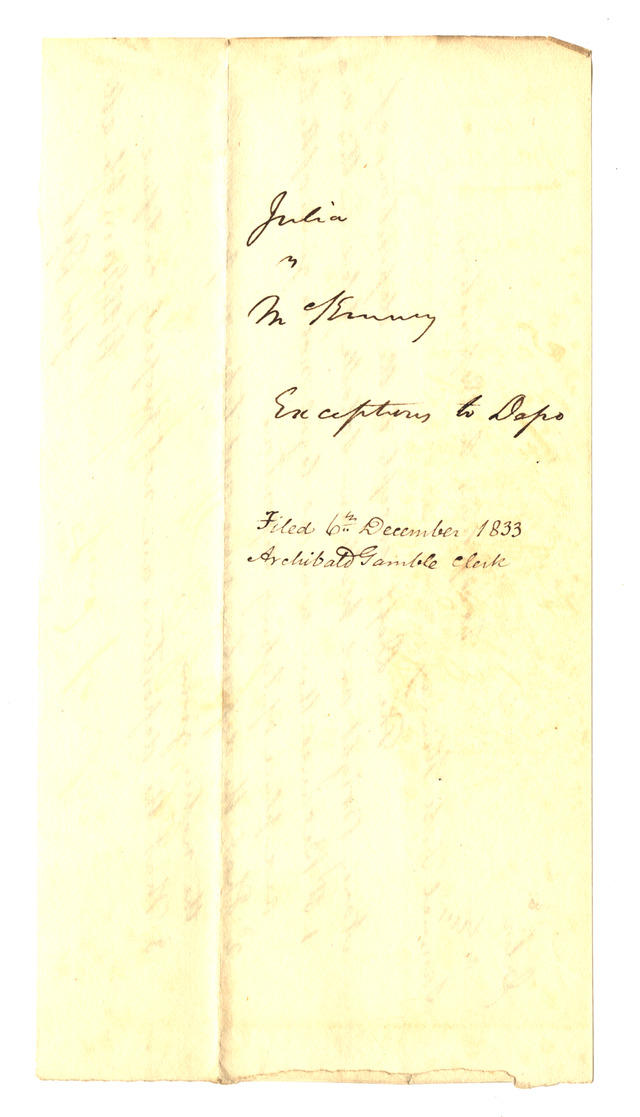 Julia
v
McKinney
Exceptions to Depo
Filed 6th December 1833
Archibald Gamble Clerk